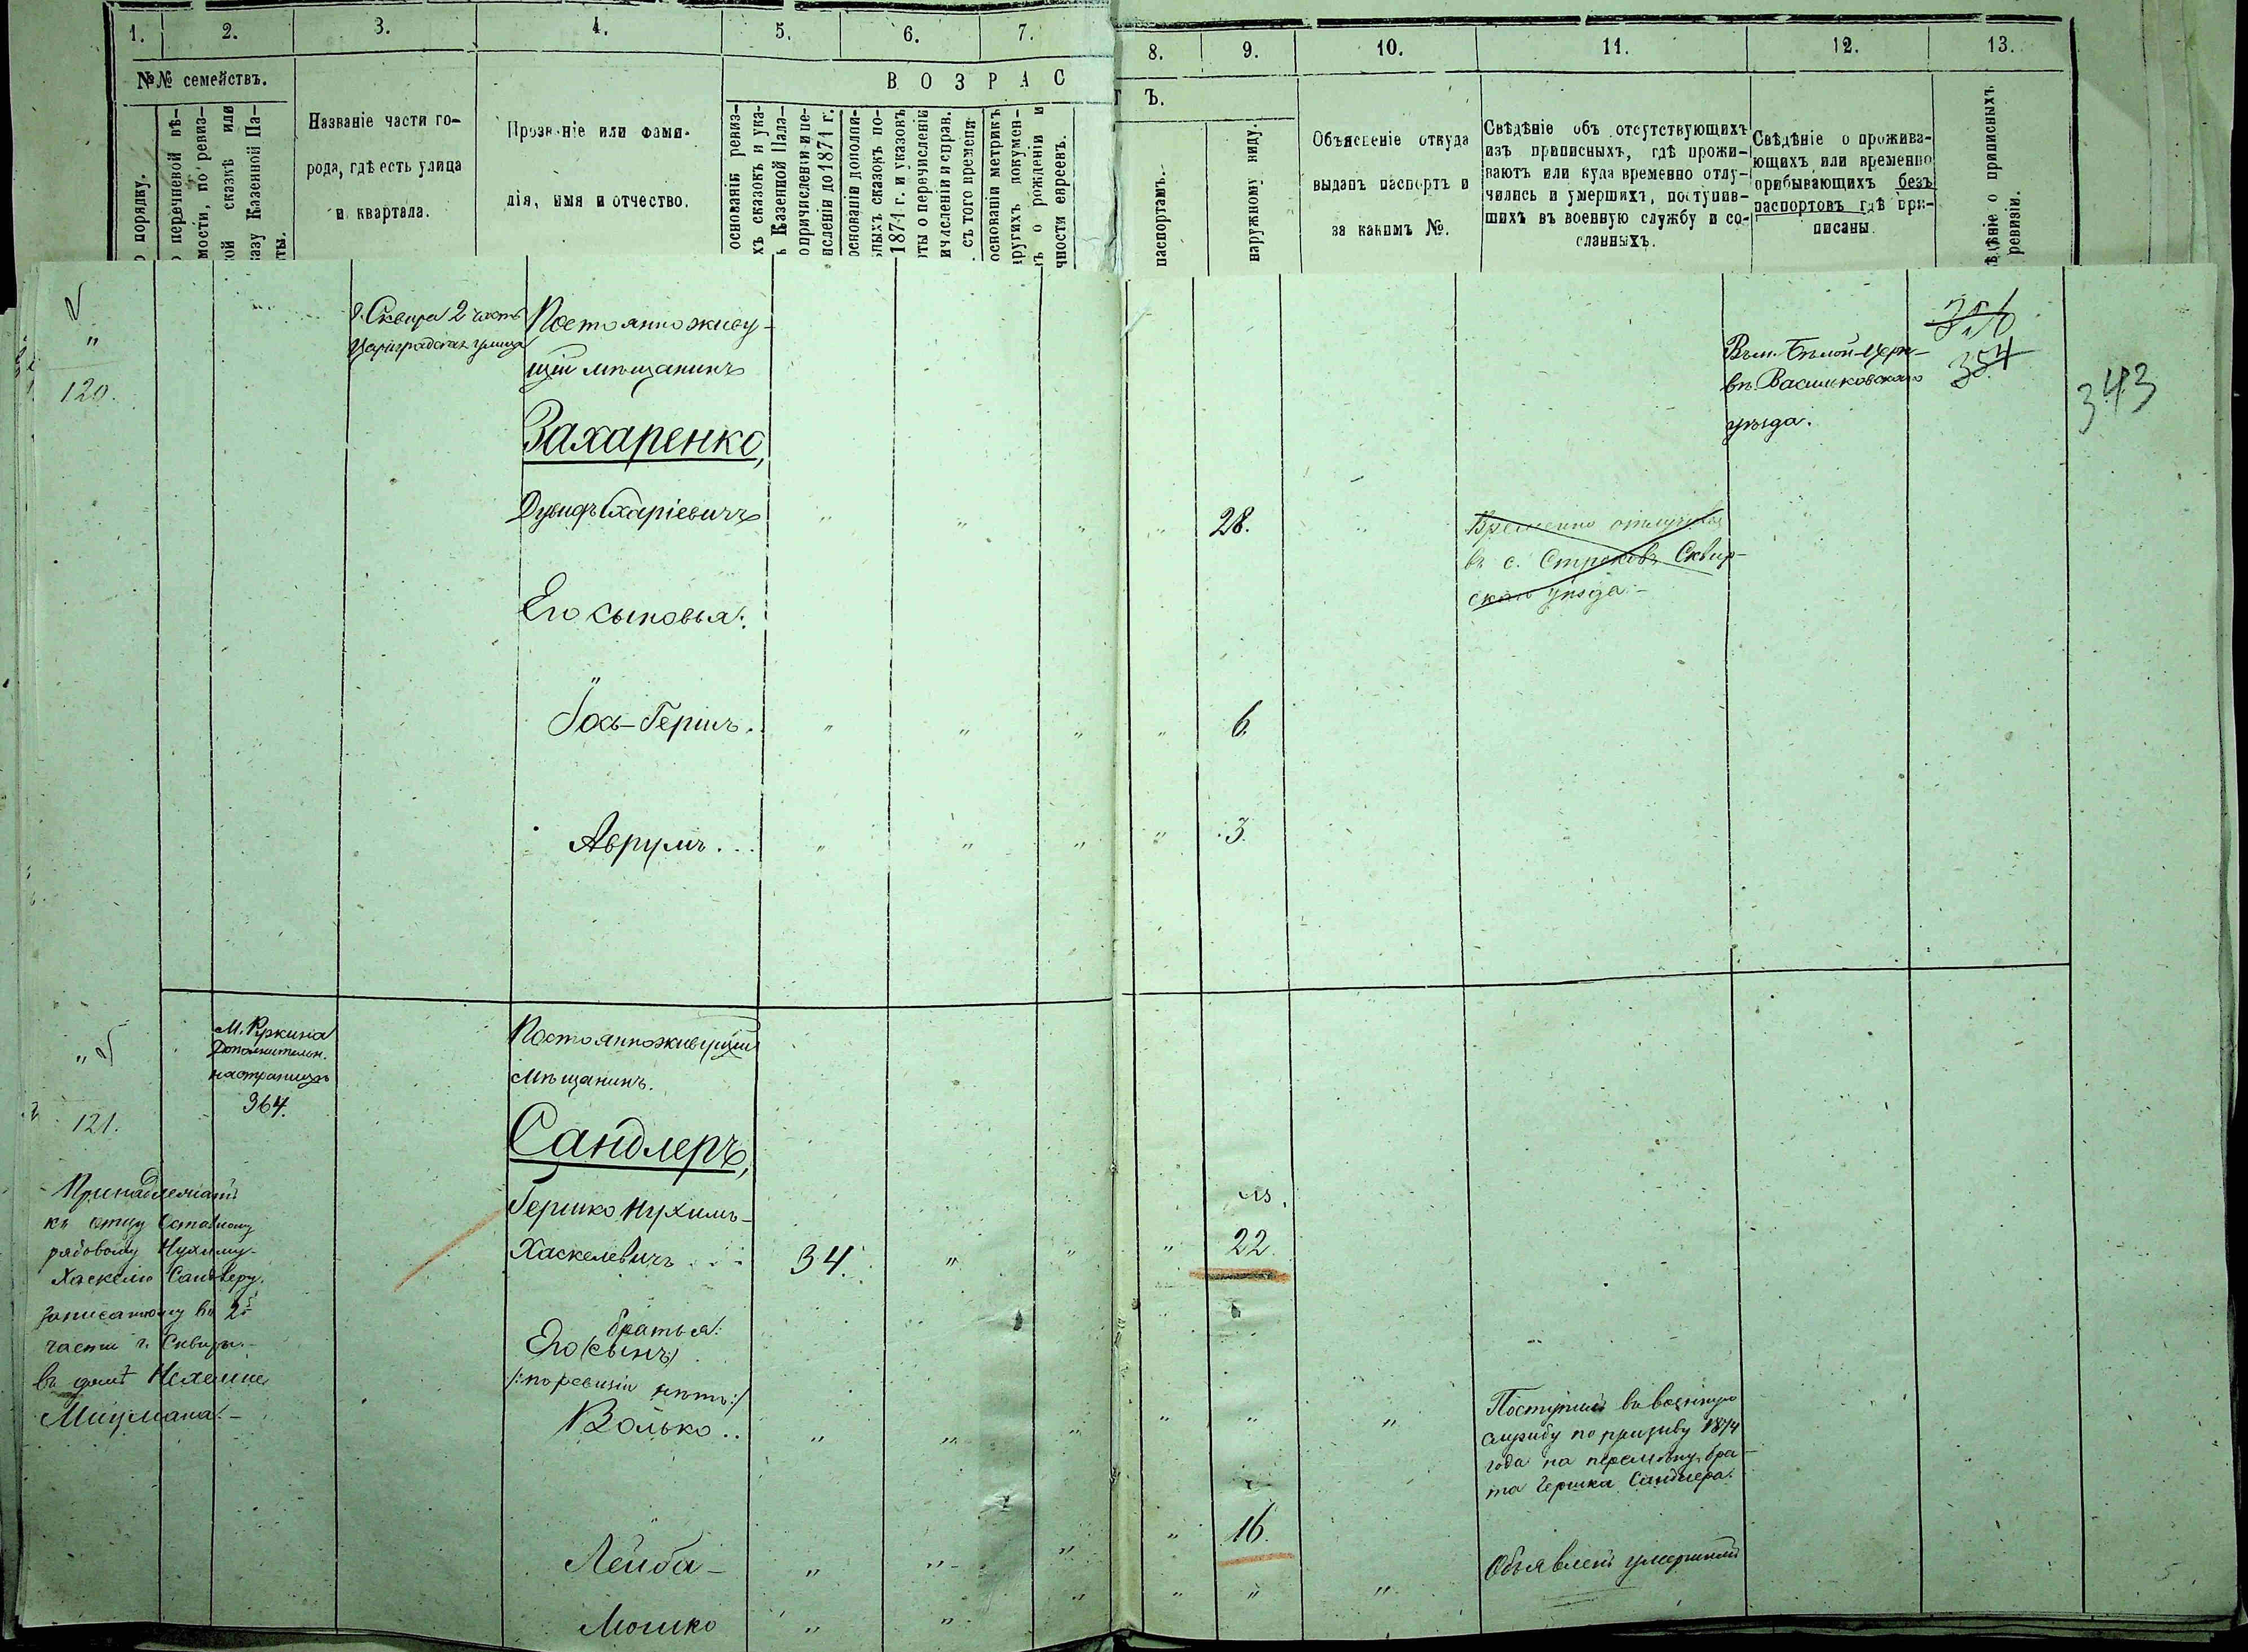 1. 2. 3. 4. 5. 6. 7. 8. 9. 10. 11. 12. 13.
№№ семействъ.
порядку.
перечневой вѣ-
мости, по ревиз-
ой сказкѣ или
казу Казенной Па-
ты.
Названіе части го-
рода, гдѣ есть улица
и квартала.
Прозваніе или фами-
лія, имя и отчество.
ВОЗРАСТЪ.
основаніи ревиз-
хъ сказокъ и ука-
ъ Казенной Пала-
о причисленіи и пе-
исленіи до 1871 г.
основаніи дополни-
ьныхъ сказокъ по-
1871 г. и указовъ
ты о перечисленіи
ичисленіи и справ.
съ того времени.
основаніи метрикъ
другихъ докумен-
въ о рожденіи и
чности евреевъ.
паспортамъ.
наружному виду.
Объясненіе откуда
выданъ паспортъ и
за какимъ №.
Свѣдѣніе объ отсутствующихъ
изъ приписныхъ, гдѣ прожи-
ваютъ или куда временно отлу-
чились и умершихъ, поступив-
шихъ въ военную службу и со-
сланныхъ.
Свѣдѣніе о прожива-
ющихъ или временно
прибывающихъ безъ
паспортовъ гдѣ при-
писаны.
ѣдѣніе о приписныхъ
ревизіи.
"
120.
г. Сквира 2 часть
Цариградская улица
Постоянно живу-
щій мѣщанинъ
Захаренко,
Дувидъ Схаріевичъ " " " " 28. "
Временно отлучился
въ с. Строковъ Сквир-
скаго уѣзда -
Въ м. Бѣлой-Церк-
вѣ Васильковскаго
уѣзда.
354
343
Его сыновья:
Іось-Гершъ. " " " " 6
Аврумъ. " " " " 3.
"
121.
М. Ружина
Дополнительн.
на страницѣ
364.
Постоянно живущій
мѣщанинъ.
Сандлеръ,
Гершко Нухимъ-
Хаскелевичъ 34. " " " 22
Принадлежатъ
къ отцу Отставному
рядовому Нухиму-
Хаскелю Сандлеру,
записанному во 2й
части г. Сквиры.-
въ домѣ
братья:
Его (сынъ)
/:по ревизіи нѣтъ:/
Волько.. " " " " " "
Поступилъ въ военную
службу по призыву 1874
года на перемѣну бра-
та Гершка Сандлера.
Лейба- " " " " 16.
Объявленъ умершимъ
Мошко " " " " " "